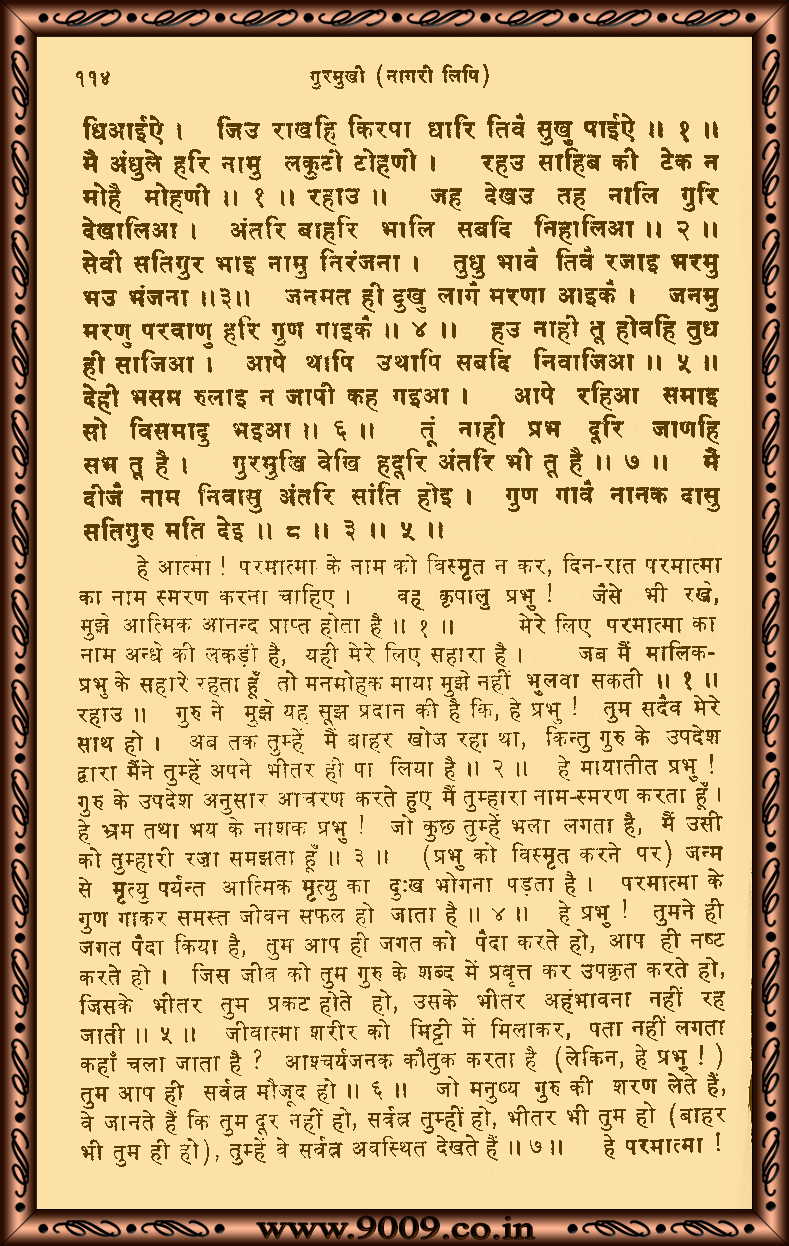 ११४ गुरमुखी (नागरी लिपि)
धिआईऐ । जिउ राखहि किरपा धारि तिवै सुखु पाईऐ ॥ १ ॥
मै अंधुले हरि नामु लकुटी टोहणी । रहउ साहिब की टेक न
मोहै मोहणी ॥ १ ॥ रहाउ ॥ जह देखउ तह नालि गुरि
देखालिआ । अंतरि बाहरि भालि सबदि निहालिआ ॥ २ ॥
सेवी सतिगुर भाइ नामु निरंजना । तुधु भावै तिवै रजाइ भरमु
भउ भंजना ॥३॥ जनमत ही दुखु लागै मरणा आइकै । जनमु
मरणु परवाणु हरि गुण गाइकै ॥ ४ ॥ हउ नाही तू होवहि तुध
ही साजिआ । आपे थापि उथापि सबदि निवाजिआ ॥ ५ ॥
देही भसम रुलाइ न जापी कह गइआ । आपे रहिआ समाइ
सो विसमादु भइआ ॥ ६ ॥ तूं नाही प्रभ दूरि जाणहि
सभ तू है । गुरमुखि वेखि हदूरि अंतरि भी तू है ॥ ७ ॥ मै
दीजै नाम निवासु अंतरि सांति होइ । गुण गावै नानक दासु
सतिगुरु मति देइ ॥ ८ ॥ ३ ॥ ५ ॥
हे आत्मा ! परमात्मा के नाम को विस्मृत न कर, दिन-रात परमात्मा
का नाम स्मरण करना चाहिए । वह कृपालु प्रभु ! जैसे भी रखे,
मुझे आत्मिक आनन्द प्राप्त होता है ॥ १ ॥ मेरे लिए परमात्मा का
नाम अन्धे की लकड़ी है, यही मेरे लिए सहारा है । जब मैं मालिक-
प्रभु के सहारे रहता हूँ तो मनमोहक माया मुझे नहीं भुलवा सकती ॥ १ ॥
रहाउ ॥ गुरु ने मुझे यह सूझ प्रदान की है कि, हे प्रभु ! तुम सदैव मेरे
साथ हो । अब तक तुम्हें मैं बाहर खोज रहा था, किन्तु गुरु के उपदेश
द्वारा मैंने तुम्हें अपने भीतर ही पा लिया है ॥ २ ॥ हे मायातीत प्रभु !
गुरु के उपदेश अनुसार आचरण करते हुए मैं तुम्हारा नाम-स्मरण करता हूँ ।
हे भ्रम तथा भय के नाशक प्रभु ! जो कुछ तुम्हें भला लगता है, मैं उसी
को तुम्हारी रज़ा समझता हूँ ॥ ३ ॥ (प्रभु को विस्मृत करने पर) जन्म
से मृत्यु पर्यन्त आत्मिक मृत्यु का दुःख भोगना पड़ता है । परमात्मा के
गुण गाकर समस्त जीवन सफल हो जाता है ॥ ४ ॥ हे प्रभु ! तुमने ही
जगत पैदा किया है, तुम आप ही जगत को पैदा करते हो, आप ही नष्ट
करते हो । जिस जीव को तुम गुरु के शब्द में प्रवृत्त कर उपकृत करते हो,
जिसके भीतर तुम प्रकट होते हो, उसके भीतर अहंभावना नहीं रह
जाती ॥ ५ ॥ जीवात्मा शरीर को मिट्टी में मिलाकर, पता नहीं लगता
कहाँ चला जाता है ? आश्चर्यजनक कौतुक करता है (लेकिन, हे प्रभु ! )
तुम आप ही सर्वत्र मौजूद हो ॥ ६ ॥ जो मनुष्य गुरु की शरण लेते हैं,
वे जानते हैं कि तुम दूर नहीं हो, सर्वत्र तुम्हीं हो, भीतर भी तुम हो (बाहर
भी तुम ही हो), तुम्हें वे सर्वत्र अवस्थित देखते हैं ॥ ७ ॥ हे परमात्मा !
www.9009.co.in